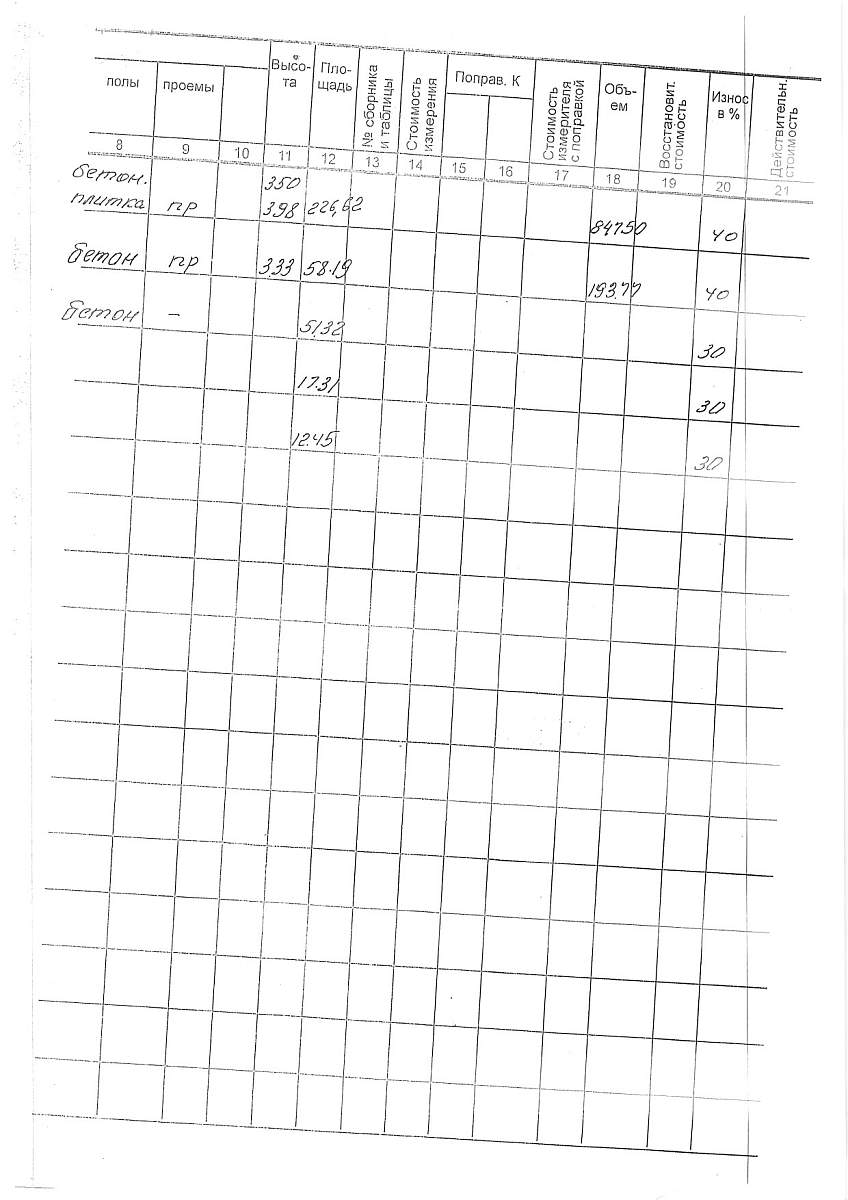 полы проемы Высо-та Пло-щадь № сборника и таблицы Стоимость измерения Поправ. К Стоимость измерителя с поправкой Объ-ем Восстановит. стоимость Износ в % Действительн. стоимость
8 9 10 11 12 13 14 15 16 17 18 19 20 21
бетон. 350
плитка пр 398 226,62 847.50 40
бетон пр 333 58.19 193.77 40
бетон - 51.32 30
17.31 30
12.45 30